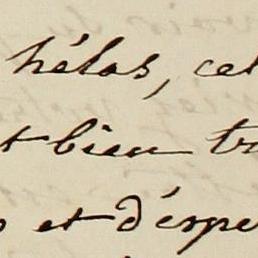 hélas, cet
t bien tr
et déspe